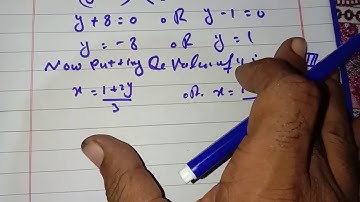 y + 8 = 0 oR y - 1 = 0
y = - 8 oR y = 1
Now putting Qe Value of y
x = 1 + 2y / 3 oR. x = 1